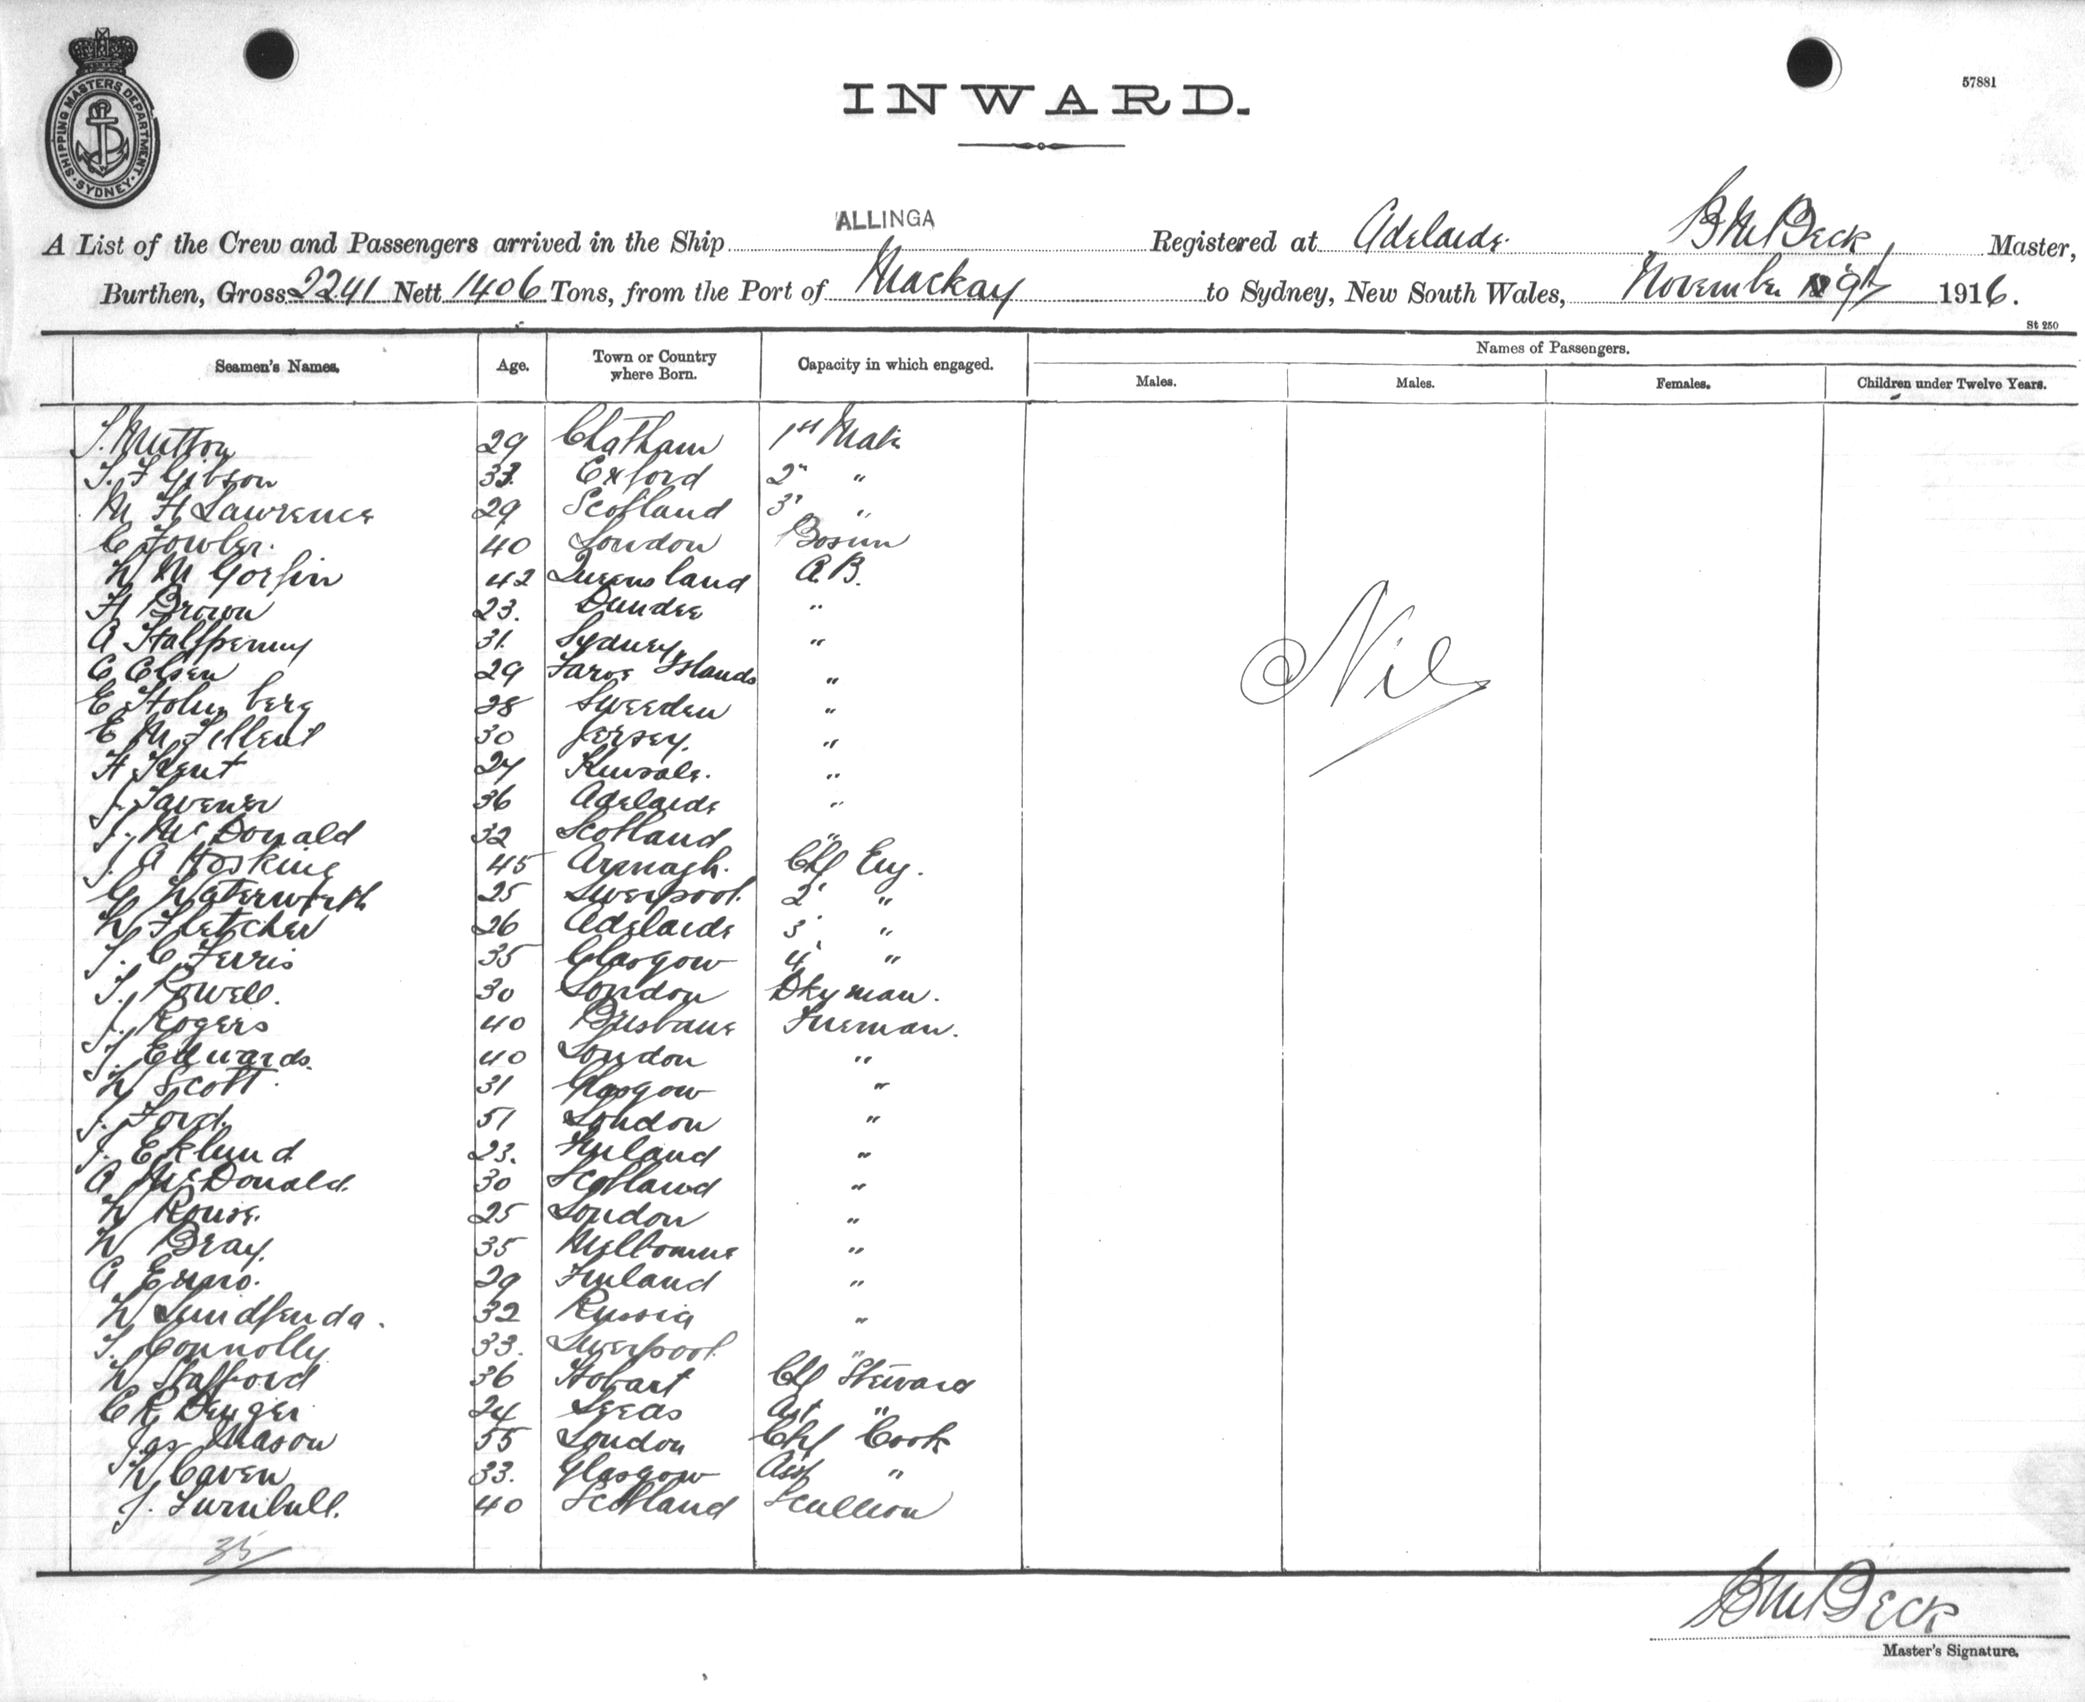 SHIPPING MASTERS DEPARTMENT. SYDNEY.
57881
INWARD.
A List of the Crew and Passengers arrived in the Ship ALLINGA Registered at Adelaide. Beck Master,
Burthen, Gross 2241 Nett 1406 Tons, from the Port of Mackay to Sydney, New South Wales, November 9th 1916.
St 250
Seamen's Names. Age. Town or Country where Born. Capacity in which engaged. Names of Passengers.
Males. Males. Females. Children under Twelve Years.
Mutton 29 Chatham 1st Mate
Gibson 33 Oxford 2" "
M H Lawrence 29 Scotland 3' "
C Fowler. 40 London Bosun
W M 42 Queensland A.B.
H Brown 23. Dundee "
A Halfpenny 31. Sydney "
C Olsen 29 Faroe Islands "
E Holmberg 28 Sweeden "
E M 30 Jersey. "
H Kent 27 Kinsale. "
J. Tavener 36 Adelaide "
J. McDonald 32 Scotland "
J. A Hosking 45 Armagh. Chf Eng.
G Waterworth 25 Liverpool. 2' "
W Fletcher 26 Adelaide 3' "
J. C Ferris 35 Glasgow 4' "
T. Rowell. 30 London Dkyman.
J. Rogers 40 Brisbane Fireman.
T. Edwards. 40 London "
W Scott. 31 Glasgow "
J. Ford. 51 London "
J. Eklund 23. Finland "
A McDonald. 30 Scotland "
W Rouse. 25 London "
W Bray. 35 Melbourne "
A 29 Finland "
W 32 Russia "
T. Connolly 33. Liverpool "
W Stafford 36 Hobart Chf Steward
C R 24 Leeds Ast "
Jas Mason 55 London Chf Cook
W Caven 33. Glasgow Asst "
J. Turnbull. 40 Scotland Scullion
Nil
35
Beck
Master's Signature.